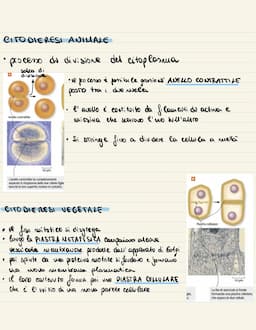 CITODIERESI ANIMALE
• processo di divisione del citoplasma
solco di
divisione
• il processo è possibile perché ANELLO CONTRATTILE
posto tra i due nuclei
• l'anello è costituito da filamenti di actina e
miosina che scorrono l'uno sull'altro
• si stringe fino a dividere la cellula a metà
Anello contrattile
CITODIERESI VEGETALE
• il fuso mitotico si disgrega
• lungo la PIASTRA METAFASICA compaiono alcune
vescicole membranose prodotte dall'apparato di Golgi
• poi spinte da una proteina motrice si fondono e formano
una nuova membrana plasmatica
• il loro contenuto forma poi una PIASTRA CELLULARE
che è l'inizio di una nuova parete cellulare